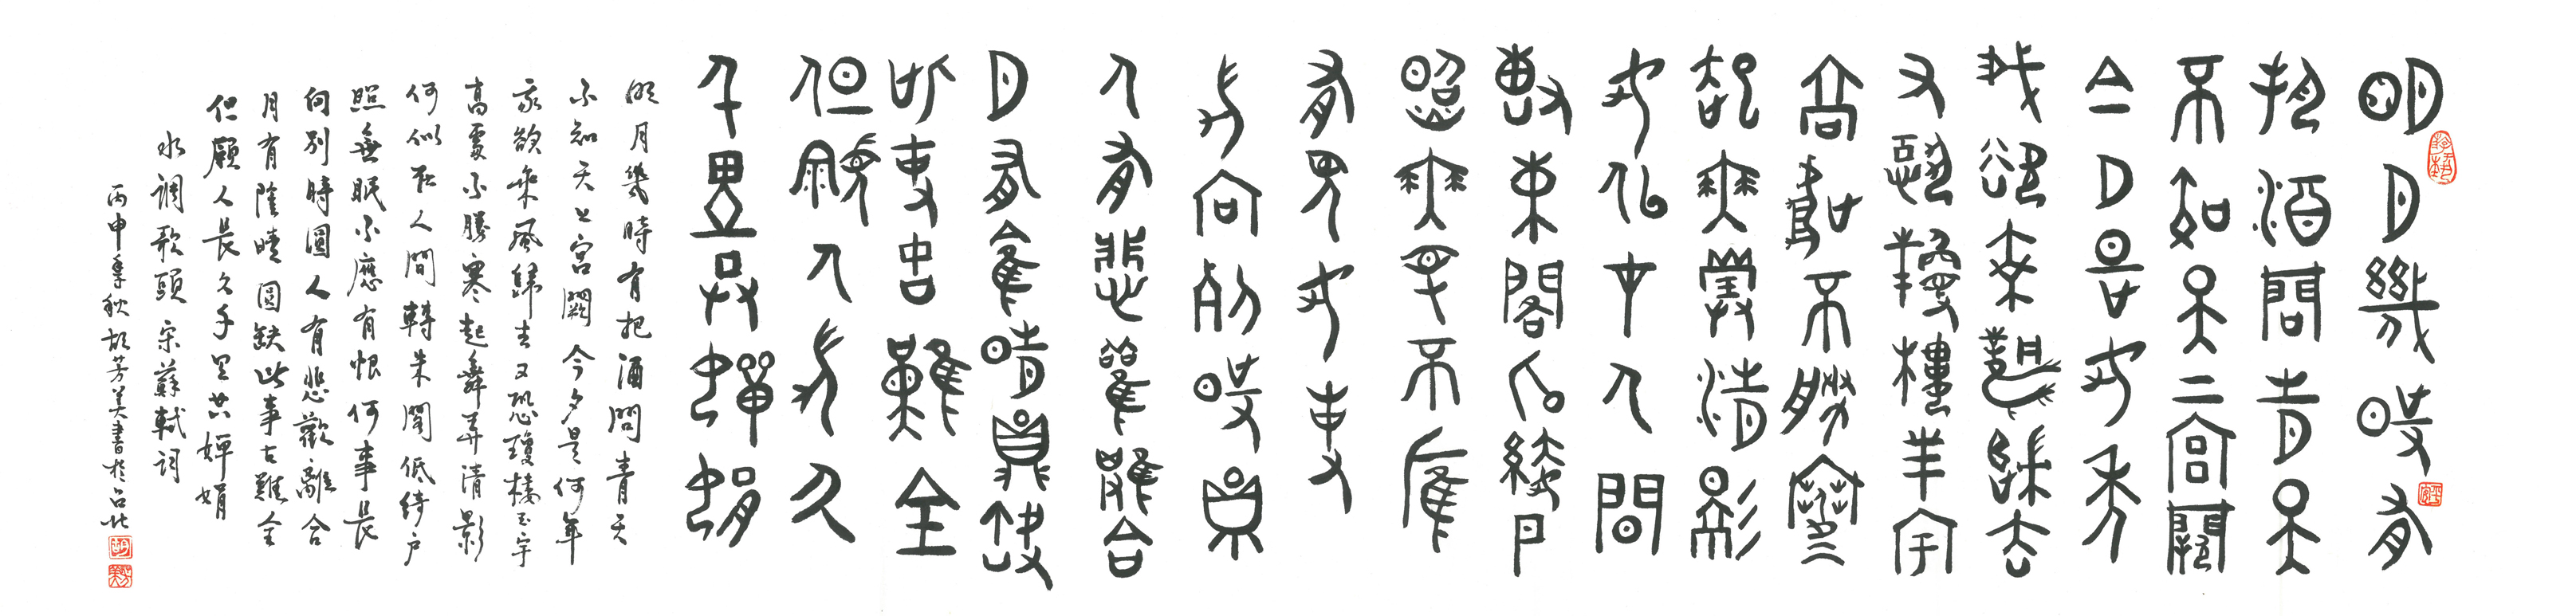 明月幾時有
把酒問青天
不知天上宮闕
今夕是何年
我欲乘風歸去
又恐瓊樓玉宇
高處不勝寒
起舞弄清影
何似在人間
轉朱閣低綺戶
照無眠不應
有恨何事
長向別時圓
人有悲歡離合
月有陰晴圓缺
此事古難全
但願人長久
千里共嬋娟
明月幾時有把酒問青天
不知天上宮闕今夕是何年
我欲乘風歸去又恐瓊樓玉宇
高處不勝寒起舞弄清影
何似在人間轉朱閣低綺戶
照無眠不應有恨何事長
向別時圓人有悲歡離合
月有陰晴圓缺此事古難全
但願人長久千里共嬋娟
水調歌頭 宋蘇軾詞
丙申年秋胡芳美書於台北